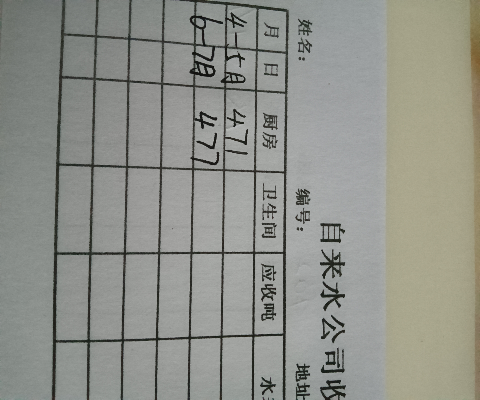 自来水公司收
姓名： 编号： 地址
月 日 厨房 卫生间 应收吨 水
4-5月 471
6-7月 477